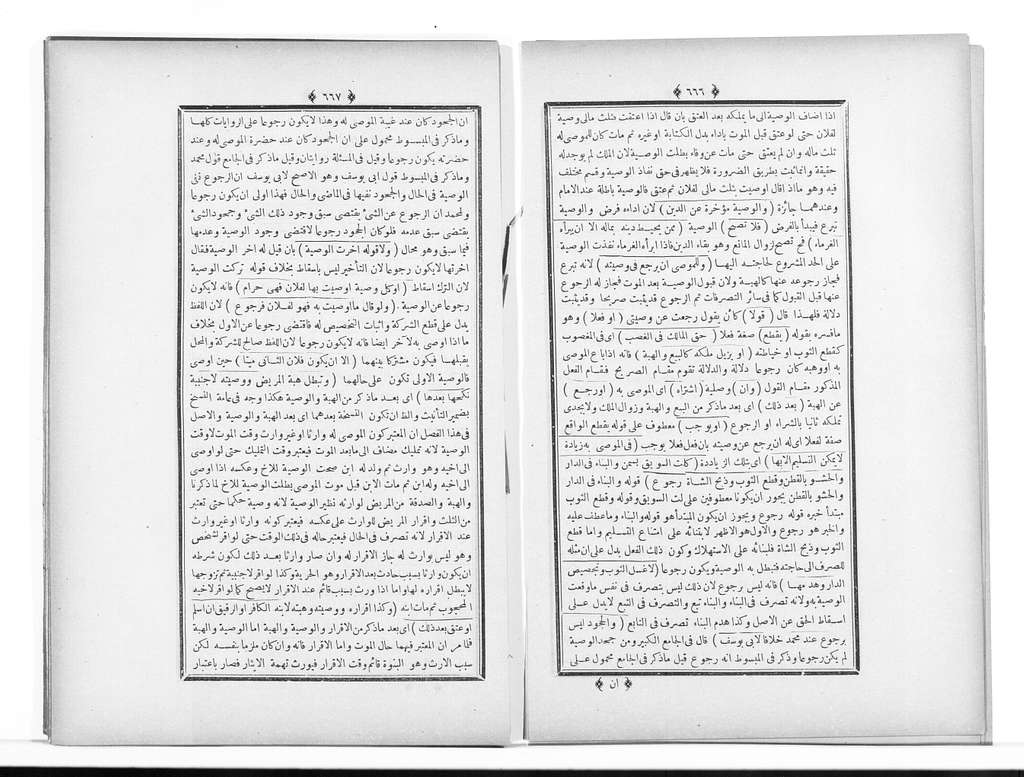 ﴿ ٦٦٦ ﴾
اذا اضاف الوصية الى ما يملكه بعد العتق بان قال اذا اعتقت فثلث مالى وصية
لفلان حتى لو عتق قبل الموت باداء بدل الكتابة او غيره ثم مات كان للموصى له
ثلث ماله وان لم يعتق حتى مات عن وفاء بطلت الوصية لان الملك لم يوجد له
حقيقة وانما ثبت بطريق الضرورة فلا يظهر فى حق نفاذ الوصية وقسم مختلف
فيه وهو ما اذا قال اوصيت بثلث مالى لفلان ثم عتق فالوصية باطلة عند الامام
وعندهما جائزة ( والوصية مؤخرة عن الدين ) لان اداءه فرض والوصية
تبرع فيبدأ بالفرض ( فلا تصح ) الوصية ( ممن يحيط دينه بماله الا ان يبرأه
الغرماء ) فح تصح لزوال المانع وهو بقاء الدين فاذا ابرأه الغرماء نفذت الوصية
على الحد المشروع لحاجته اليها ( وللموصى ان يرجع فى وصيته ) لانه تبرع
فجاز رجوعه عنها كالهبة ولان قبول الوصية بعد الموت فجاز له الرجوع
عنها قبل القبول كما فى سائر التصرفات ثم الرجوع قد يثبت صريحا وقد يثبت
دلالة فلهذا قال ( قولا ) كان يقول رجعت عن وصيتى ( او فعلا ) وهو
ما فسره بقوله ( يقطع ) صفة فعلا ( حق المالك فى الغصب ) اى فى المغصوب
كقطع الثوب او خياطته ( او يزيل ملكه كالبيع والهبة ) فانه اذا باع الموصى
به او وهبه كان رجوعا دلالة والدلالة تقوم مقام الصريح فقام الفعل
المذكور مقام القول ( وان ) وصلية ( اشتراه ) اى الموصى به ( او رجع )
عن الهبة ( بعد ذلك ) اى بعد ما ذكر من البيع والهبة وزوال الملك ولا يجدى
تملكه ثانيا بالشراء او الرجوع ( او يوجب ) معطوف على قوله يقطع الواقع
صفة لفعلا اى له ان يرجع عن وصيته بان فعل فعلا يوجب ( فى الموصى به زيادة
لا يمكن التسليم الا بها ) اى بتلك الزيادة ( كلت السويق بسمن والبناء فى الدار
والحشو بالقطن وقطع الثوب وذبح الشاة رجوع ) قوله والبناء فى الدار
والحشو بالقطن يجوز ان يكونا معطوفين على لت السويق وقوله وقطع الثوب
مبتدأ خبره قوله رجوع ويجوز ان يكون المبتدأ هو قوله والبناء وما عطف عليه
والخبر هو رجوع والاول هو الاظهر لابتنائه على امتناع التسليم واما قطع
الثوب وذبح الشاة فلبنائه على الاستهلاك وكون ذلك الفعل يدل على ان مثله
للصرف الى حاجته فتبطل به الوصية ويكون رجوعا ( لا غسل الثوب وتجصيص
الدار وهدمها ) فانه ليس رجوع لان ذلك ليس بتصرف فى نفس ما وقعت
الوصية به ولانه تصرف فى البناء والبناء تبع والتصرف فى التبع لا يدل على
اسقاط الحق عن الاصل وكذا هدم البناء تصرف فى التابع ( والجحود ليس
برجوع عند محمد خلافا لابى يوسف ) قال فى الجامع الكبير ومن جحد الوصية
لم يكن رجوعا وذكر فى المبسوط انه رجوع قيل ما ذكر فى الجامع محمول على
﴿ ان ﴾
﴿ ٦٦٧ ﴾
ان الجحود كان عند غيبة الموصى له وهذا لا يكون رجوعا على الروايات كلها
وما ذكر فى المبسوط محمول على ان الجحود كان عند حضرة الموصى له وعند
حضرته يكون رجوعا وقيل فى المسئلة روايتان وقيل ما ذكر فى الجامع قول محمد
وما ذكر فى المبسوط قول ابى يوسف وهو الاصح لابى يوسف ان الرجوع نفى
الوصية فى الحال والجحود نفيها فى الماضى والحال فهذا اولى ان يكون رجوعا
ولمحمد ان الرجوع عن الشئ يقتضى سبق وجود ذلك الشئ وجحود الشئ
يقتضى سبق عدمه فلو كان الجحود رجوعا لاقتضى وجود الوصية وعدمها
فيما سبق وهو محال ( ولا قوله اخرت الوصية ) بان قيل له اخر الوصية فقال
اخرتها لا يكون رجوعا لان التأخير ليس باسقاط بخلاف قوله تركت الوصية
لان الترك اسقاط ( او كل وصية اوصيت بها لفلان فهى حرام ) فانه لا يكون
رجوعا عن الوصية . ( ولو قال ما اوصيت به فهو لفلان فرجوع ) لان اللفظ
يدل على قطع الشركة واثبات التخصيص له فاقتضى رجوعا عن الاول بخلاف
ما اذا اوصى به لآخر ايضا فانه لا يكون رجوعا لان اللفظ صالح للشركة والمحل
يقبلها فيكون مشتركا بينهما ( الا ان يكون فلان الثانى ميتا ) حين اوصى
فالوصية الاولى تكون على حالهما ( وتبطل هبة المريض ووصيته لاجنبية
نكحها بعدها ) اى بعد ما ذكر من الهبة والوصية هكذا وجه فى عامة النسخ
بضمير التأنيث والظ ان تكون النسخة بعدهما اى بعد الهبة والوصية والاصل
فى هذا الفصل ان المعتبر كون الموصى له وارثا او غير وارث وقت الموت لا وقت
الوصية لانه تمليك مضاف الى ما بعد الموت فيعتبر وقت التمليك حتى لو اوصى
الى اخيه وهو وارث ثم ولد له ابن صحت الوصية للاخ وعكسه اذا اوصى
الى اخيه وله ابن ثم مات الابن قبل موت الموصى بطلت الوصية للاخ لما ذكرنا
والهبة والصدقة من المريض لوارثه نظير الوصية لانه وصية حكما حتى تعتبر
من الثلث واقرار المريض للوارث على عكسه فيعتبر كونه وارثا او غير وارث
عند الاقرار لانه تصرف فى الحال فيعتبر حاله فى ذلك الوقت حتى لو اقر لشخص
وهو ليس بوارث له جاز الاقرار له وان صار وارثا بعد ذلك لكون شرطه
ان يكون وارثا بسبب حادث بعد الاقرار وهو الحرية وكذا لو اقر لاجنبية ثم تزوجها
لا يبطل اقراره لها واما اذا ورث بسبب قائم عند الاقرار لا يصح كما لو اقر لاخيه
المحجوب ثم مات ابنه ( وكذا اقراره ووصيته وهبته لابنه الكافر او الرقيق ان اسلم
او عتق بعد ذلك ) اى بعد ما ذكر من الاقرار والوصية والهبة اما الوصية والهبة
فلما مر ان المعتبر فيهما حال الموت واما الاقرار فانه وان كان ملزما بنفسه لكن
سبب الارث وهو البنوة قائم وقت الاقرار فيورث تهمة الايثار فصار باعتبار